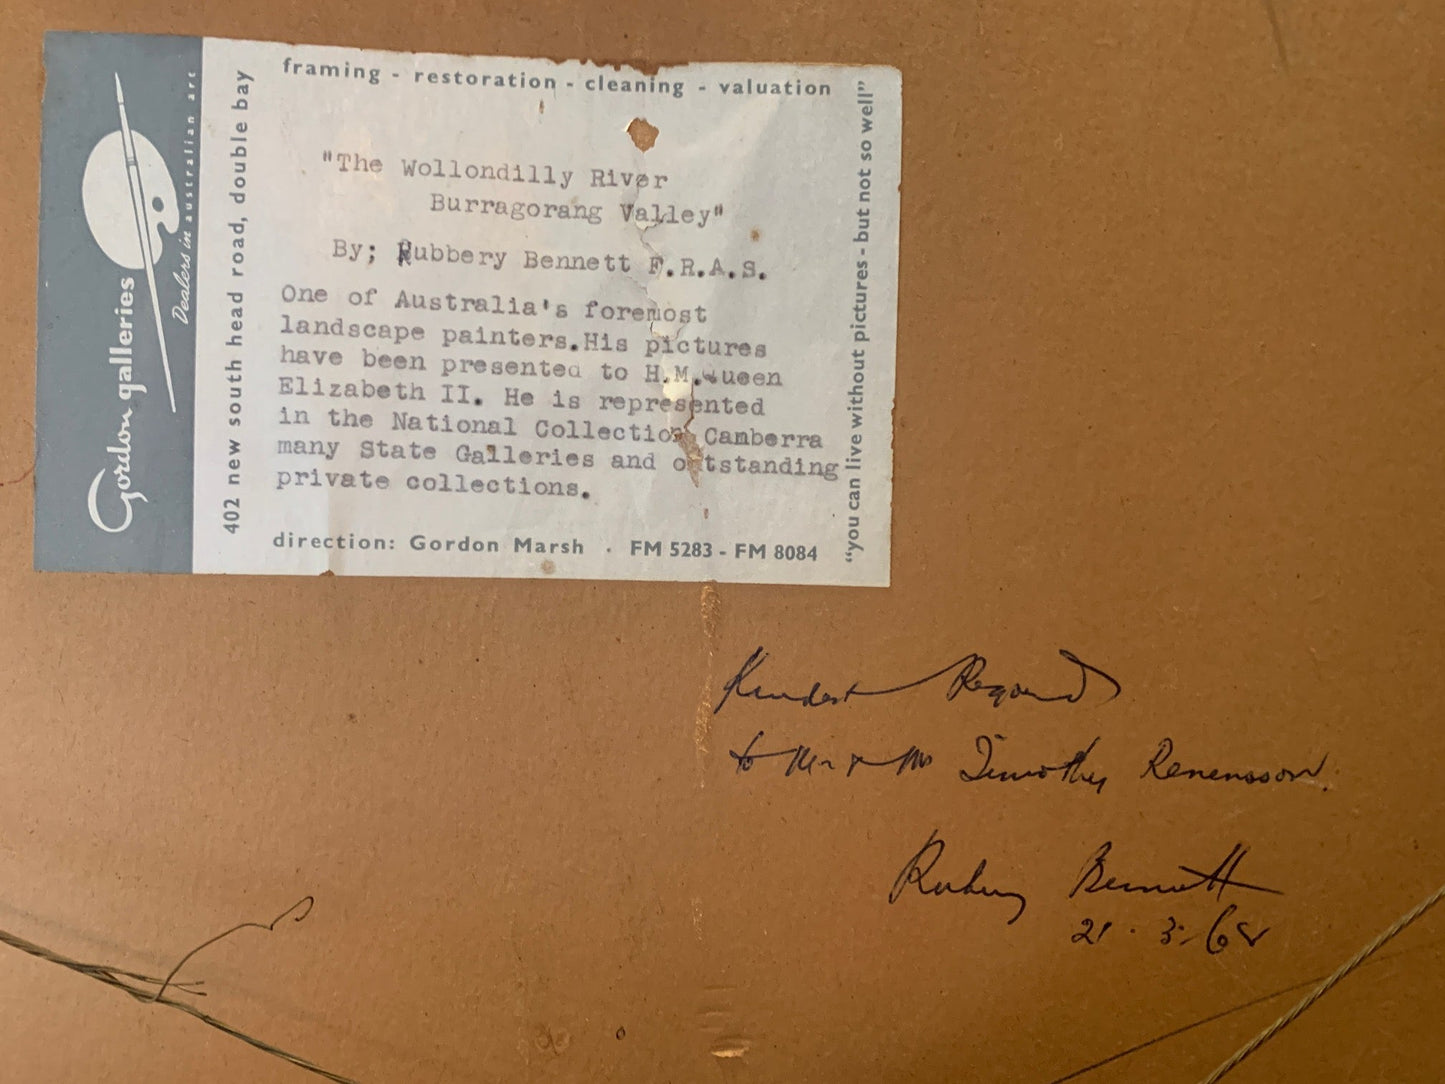 Gordon galleries
Dealers in australian art
402 new south head road, double bay
framing - restoration - cleaning - valuation
"The Wollondilly River
Burragorang Valley"
By; Rubbery Bennett F.R.A.S.
One of Australia's foremost
landscape painters.His pictures
have been presented to H.M.Queen
Elizabeth II. He is represented
in the National Collection Canberra
many State Galleries and outstanding
private collections.
direction: Gordon Marsh . FM 5283 - FM 8084
"you can live without pictures - but not so well"
Kindest Regards
to Mr & Mrs Timothy Renensson.
Rubery Bennett
21.3.68